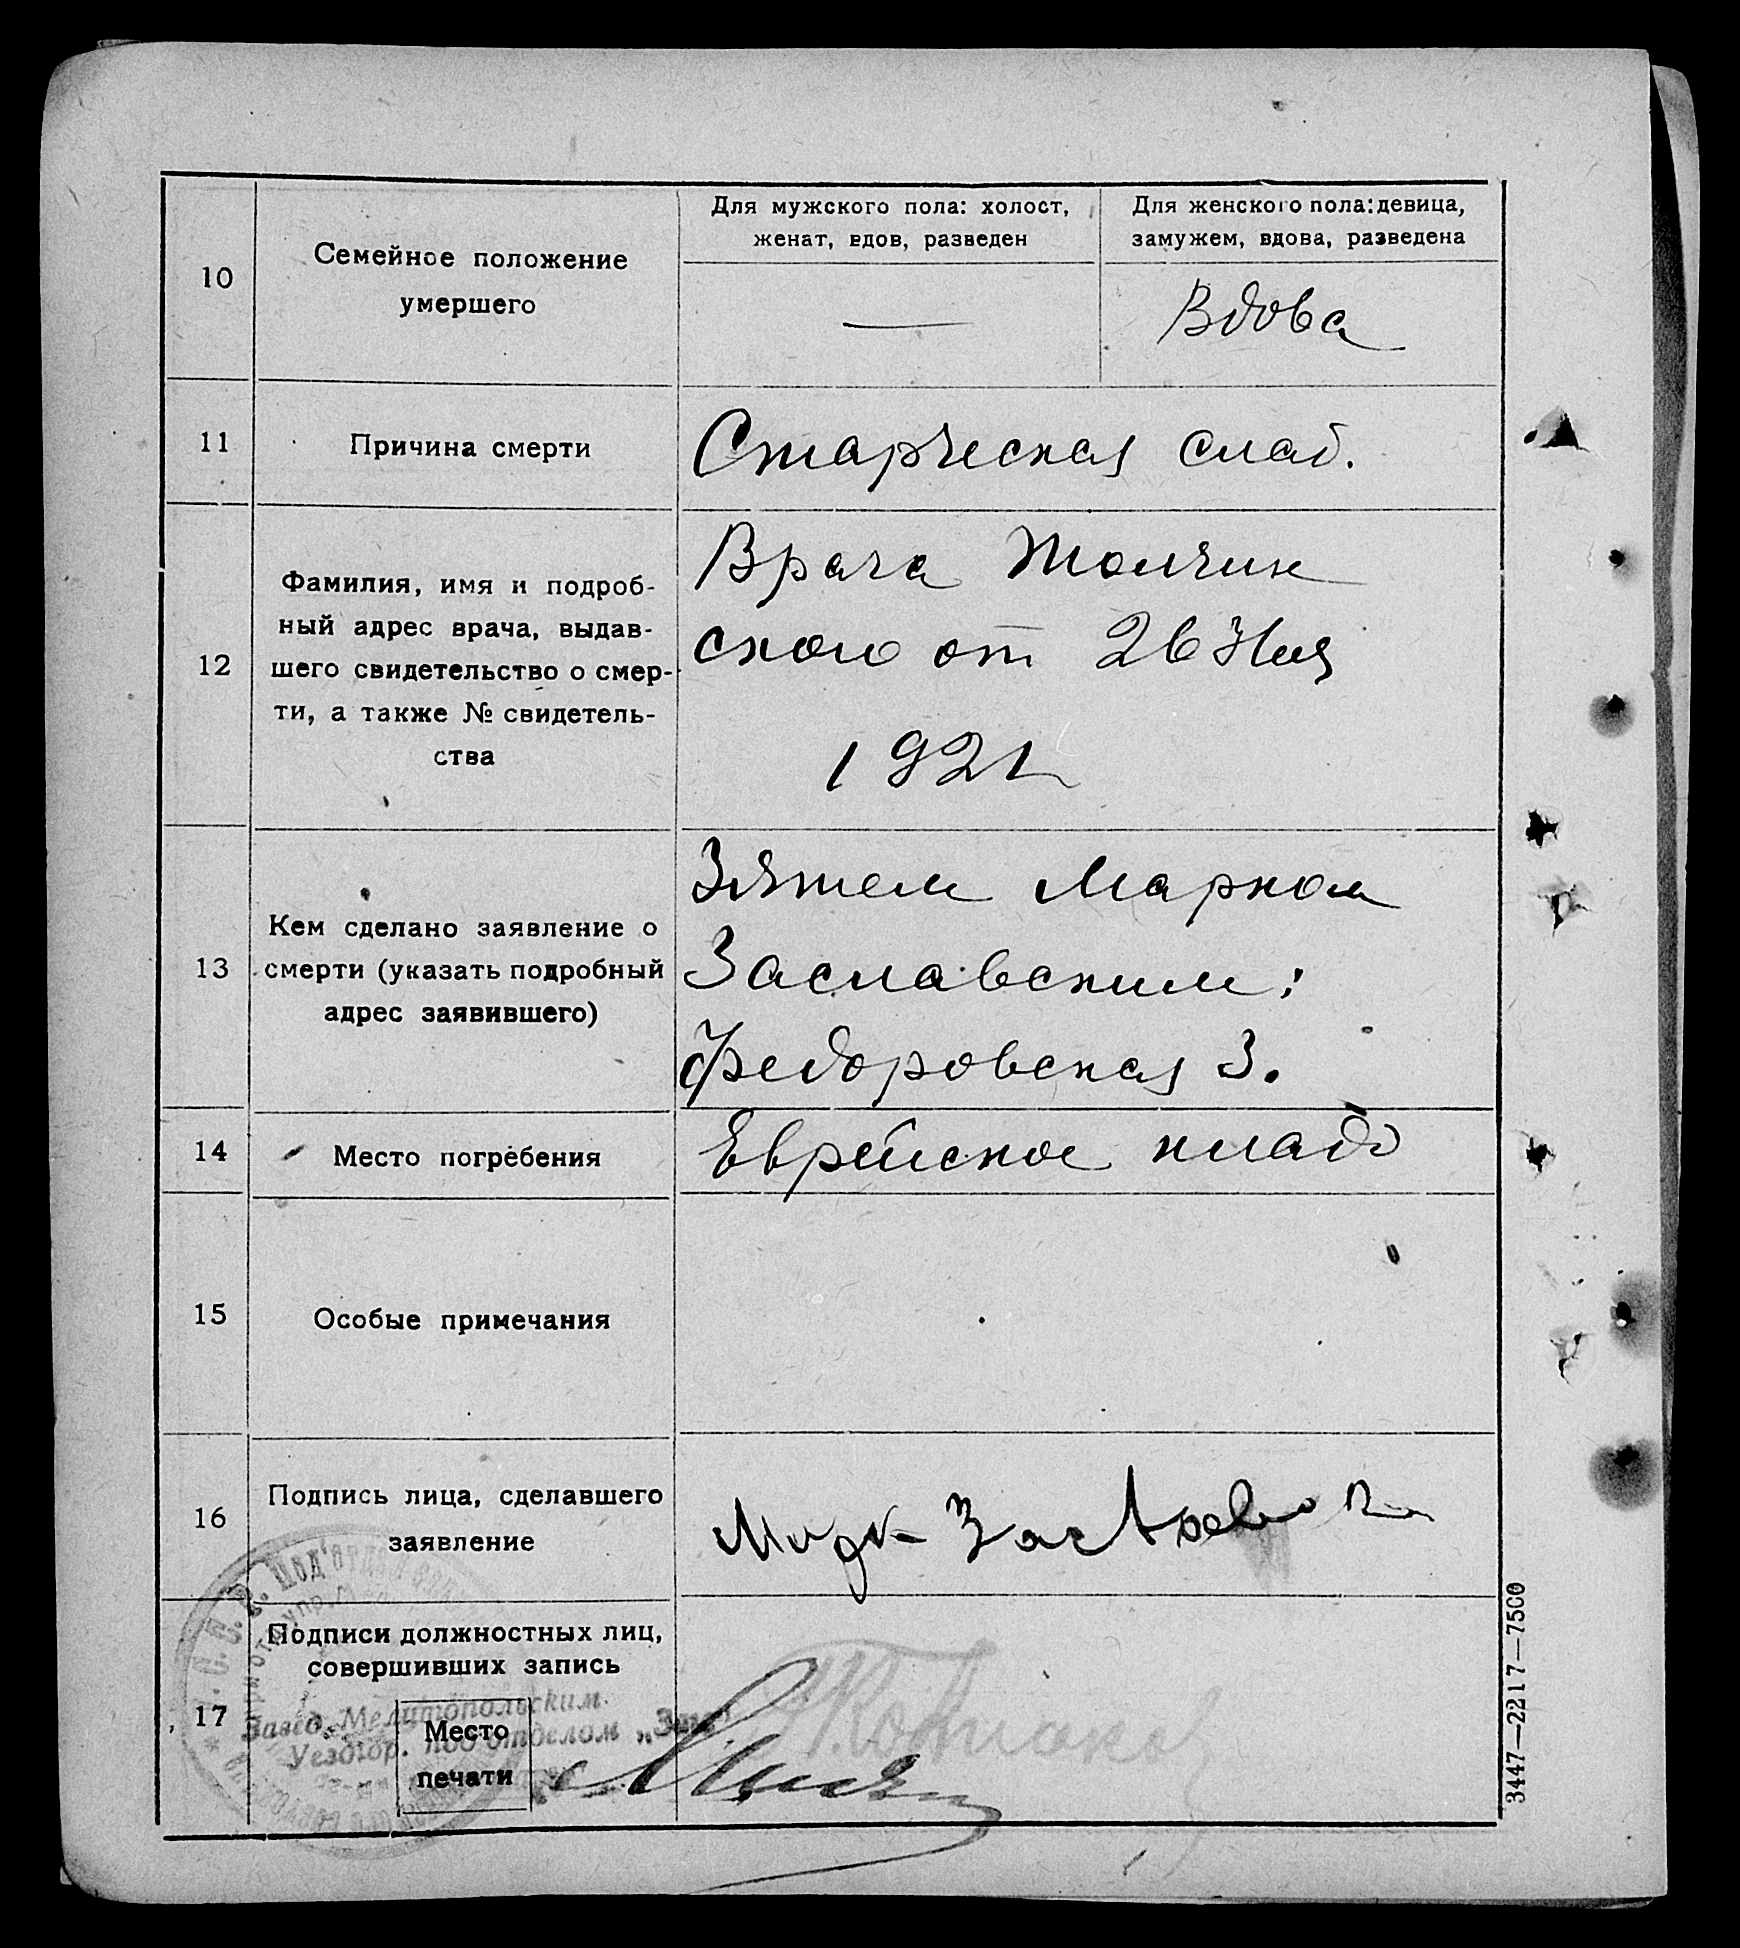 10
Семейное положение
умершего
Для мужского пола: холост,
женат, вдов, разведен
Для женского пола: девица,
замужем, вдова, разведена
—
Вдова
11
Причина смерти
Старческая слаб.
12
Фамилия, имя и подроб-
ный адрес врача, выдав-
шего свидетельство о смер-
ти, а также № свидетель-
ства
Врача Толчин
ского от 26 Июля
1921
13
Кем сделано заявление о
смерти (указать подробный
адрес заявившего)
Зятем Марком
Заславским;
Федоровская 3.
14
Место погребения
Еврейское кладб
15
Особые примечания
16
Подпись лица, сделавшего
заявление
Марк Заславский
17
Подписи должностных лиц,
совершивших запись
Завед. Мелитопольским
Уездгор. под'отделом „Загс"
Место
печати
3447—2217—7500